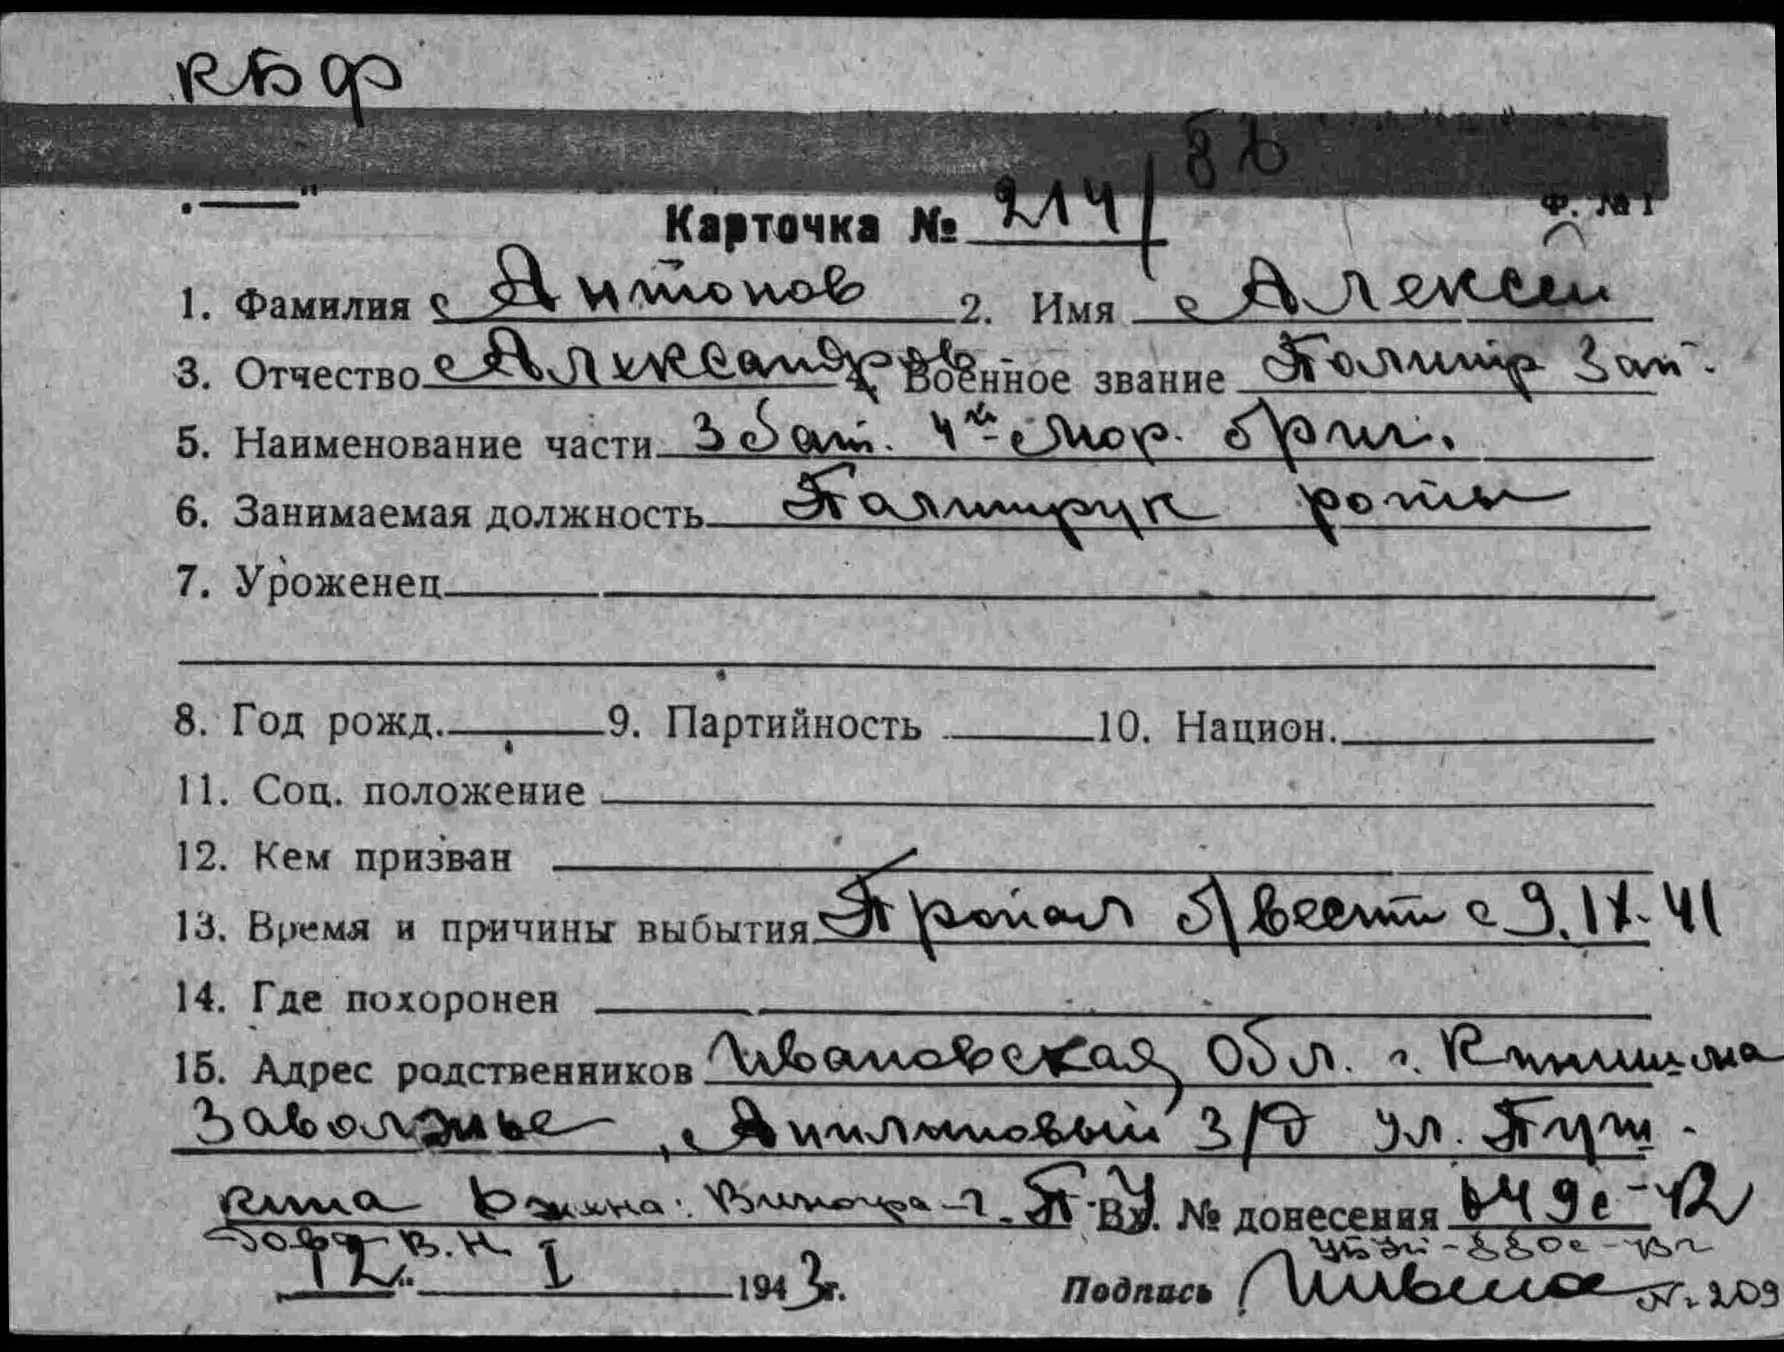 КБФ
Ф. № 1
Карточка № 214/
1. Фамилия Антонов 2. Имя Алексей
3. Отчество Александров 4. Военное звание Политр зап.
5. Наименование части 3 бат. 4й Мор. бриг.
6. Занимаемая должность Политрук роты
7. Уроженец
8. Год рожд. 9. Партийность 10. Национ.
11. Соц. положение
12. Кем призван
13. Время и причины выбытия Пропал б/вести с 9.IX.41
14. Где похоронен
15. Адрес родственников Ивановская Обл. г. Кинешма
Заволжье, Анилиновый з/д ул. Пуш-
кина жена: Виногра- Вх. № донесения
дова В.Н.
12 I 1943 г. Подпись